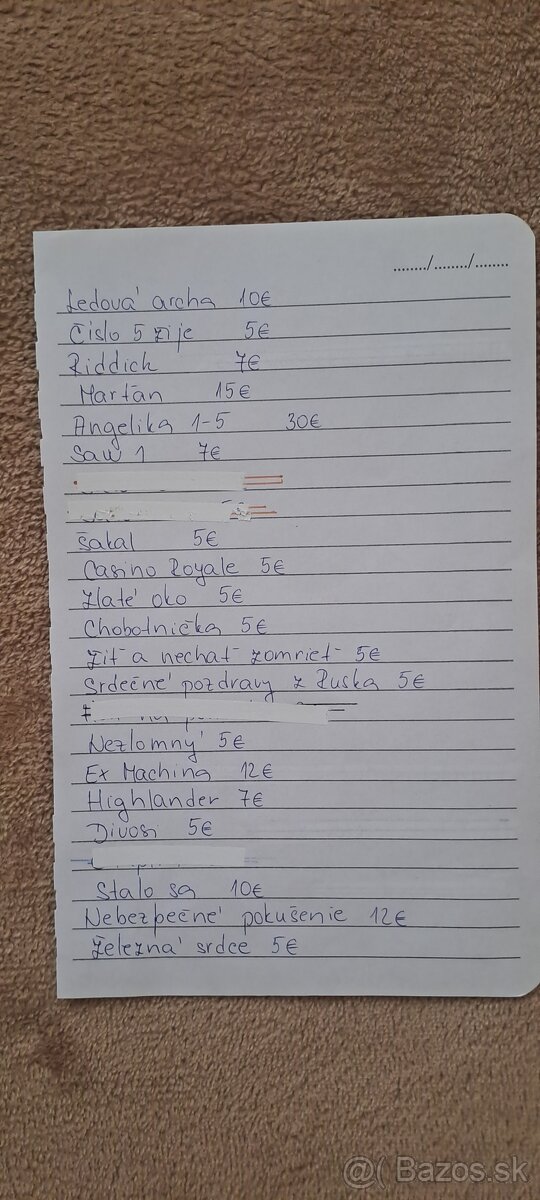 ......../......../........
Ledová archa 10€
Číslo 5 žije 5€
Riddick 7€
Marťan 15€
Angelika 1-5 30€
Saw 1 7€
Šakal 5€
Casino Royale 5€
Zlaté oko 5€
Chobotnička 5€
Žiť a nechať zomrieť 5€
Srdečné pozdravy z Ruska 5€
Nezlomný 5€
Ex Machina 12€
Highlander 7€
Divosi 5€
Stalo sa 10€
Nebezpečné pokušenie 12€
Železná srdce 5€
@( Bazos.sk